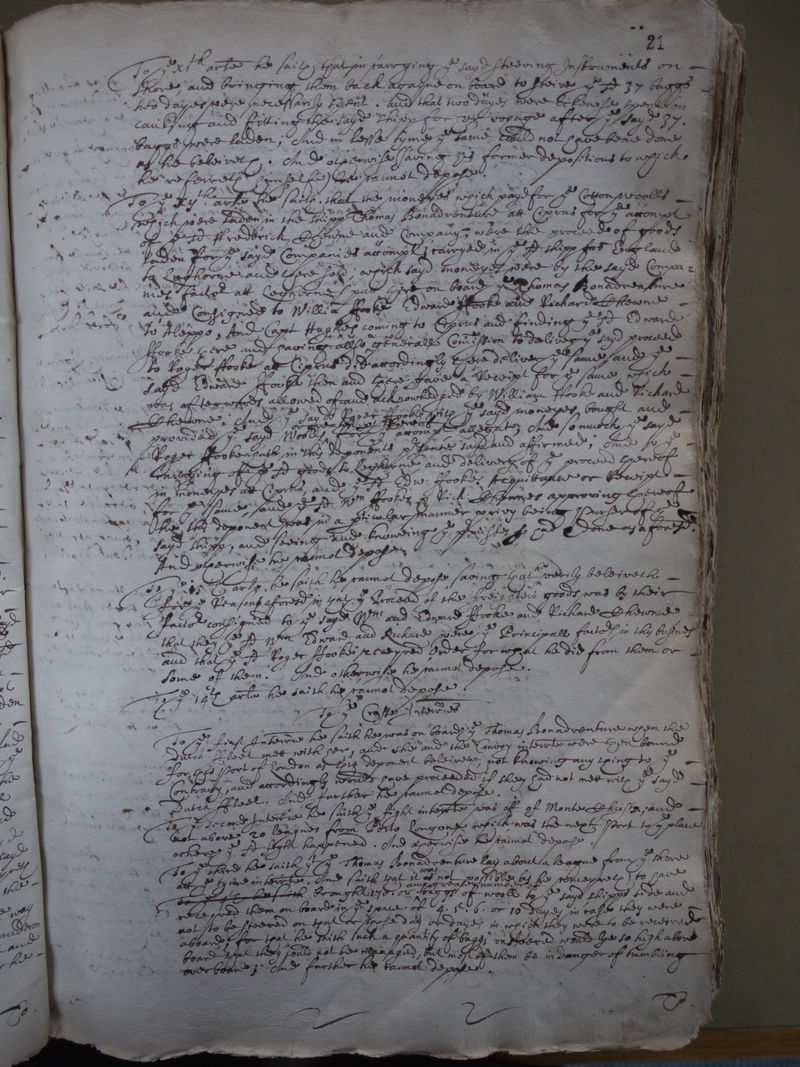 21
To ye xith arle he saith that in carrying ye sayd steeving Instruments on
shore and bringing them back againe on board to steive ye sd 37 baggs
two dayes were necessarily spent. And that two dayes were likewise spent in
caulking and fitting the sayd shipp for ye voyage after ye sayd 37.
baggs were laden, And in lesse tyme ye same could not have bene done
as he beleiveth. And otherwise saving his former depositions to which
he referreth himselfe he cannot depose.
To ye arle he saith that the moneyes which payd for ye Cotton wools
which were laden in the shipp Thomas Bonadventure att Ciprus for ye accompt
of ye sd ffrederick and Company were the proceede of goods
laden for ye sayd Companies accompt, carryed in ye sd shipp from England
to Leghorne and there sold, which sayd moneyes were by the sayd Compa-
nies factor att Leghorne put on board ye Thomas Bonadventure
and Consigned to William Hooke Edward Hooke and Richard
in Aleppo, And Capt Hughes coming to Ciprus and finding ye sd Edward
Hooke there and having allso a generall Comission to deliver ye sayd proceede
to Roger Hooke att Ciprus did accordingly there deliver ye same and ye
sayd Edward Hooke then and there gave a Receipt for ye same which
was afterwards allowed of and acknowledged by William Hooke and Richard
And ye sayd Roger Hooke with ye sayd moneyes, bought and
provided ye sayd Wools for ye accompt allegate, And so much ye sayd
Roger Hooke hath in this deponents presence sayd and affirmed; And to ye
carrying of ye sd goods to Leghorne and delivery of ye proceed thereof
in moneyes at Ciprus, and ye sd Edw. Hookes Acquittance or Receipt
for ye same, and ye sd Wm Hookes & Rich. approving thereof
he this deponent was in a pticular manner privy being purser of ye
sayd shipp, and seeing and knowing ye done as aforesd.
And otherwise he cannot depose.
To ye arle he saith he cannot depose saving that he verily beleiveth
for ye Reasons aforesd in that ye proceed of the freighters goods was by their
factor consigned to ye sayd Wm and Edward Hooke and Richard
that they ye sd Wm Edward and Richard were ye Principall factors in this busines
and that ye sd Roger Hooke receyved Order for what he did from them or
some of them. And otherwise he cannot depose.
To ye 14th arle he saith he cannot depose.
To ye Crosse Interries
To ye first Interrie he saith he was on board ye Thomas Bonadventure when the
Dutch fleet mett with her, and she and the Convoy interrte were then bound
for this Port of London as this deponent beleiveth, not knowing any thing to ye
Contrary, and accordingly would have proceeded if they had not mett with ye sayd
Dutch fleet. And further he cannot depose.
To ye second Interrie he saith ye fight interrte was off of Monte Christo, and
not above 20 leagues from Porto Longone which was the next Port to ye place
where ye sd fight happened. And otherwise he cannot depose.
To ye third he saith yt ye Thomas Bonadventure lay about a league from ye shore
att ye tyme interrte. And saith that it was not possible (as he conceyveth) to have
brought 170. or any greater number baggs of wooll to ye sayd shipps side and
receyved them on board in ye space of 4. 5. 6. or 10 dayes in case they were
not to be steeved on that or those day or dayes in which they were to be received
aboard, for that he saith such a quantity of baggs unsteeved would lye so high above
board that they could not be managed, but most of them be in danger of tumbling
overboard; And further he cannot depose.
To